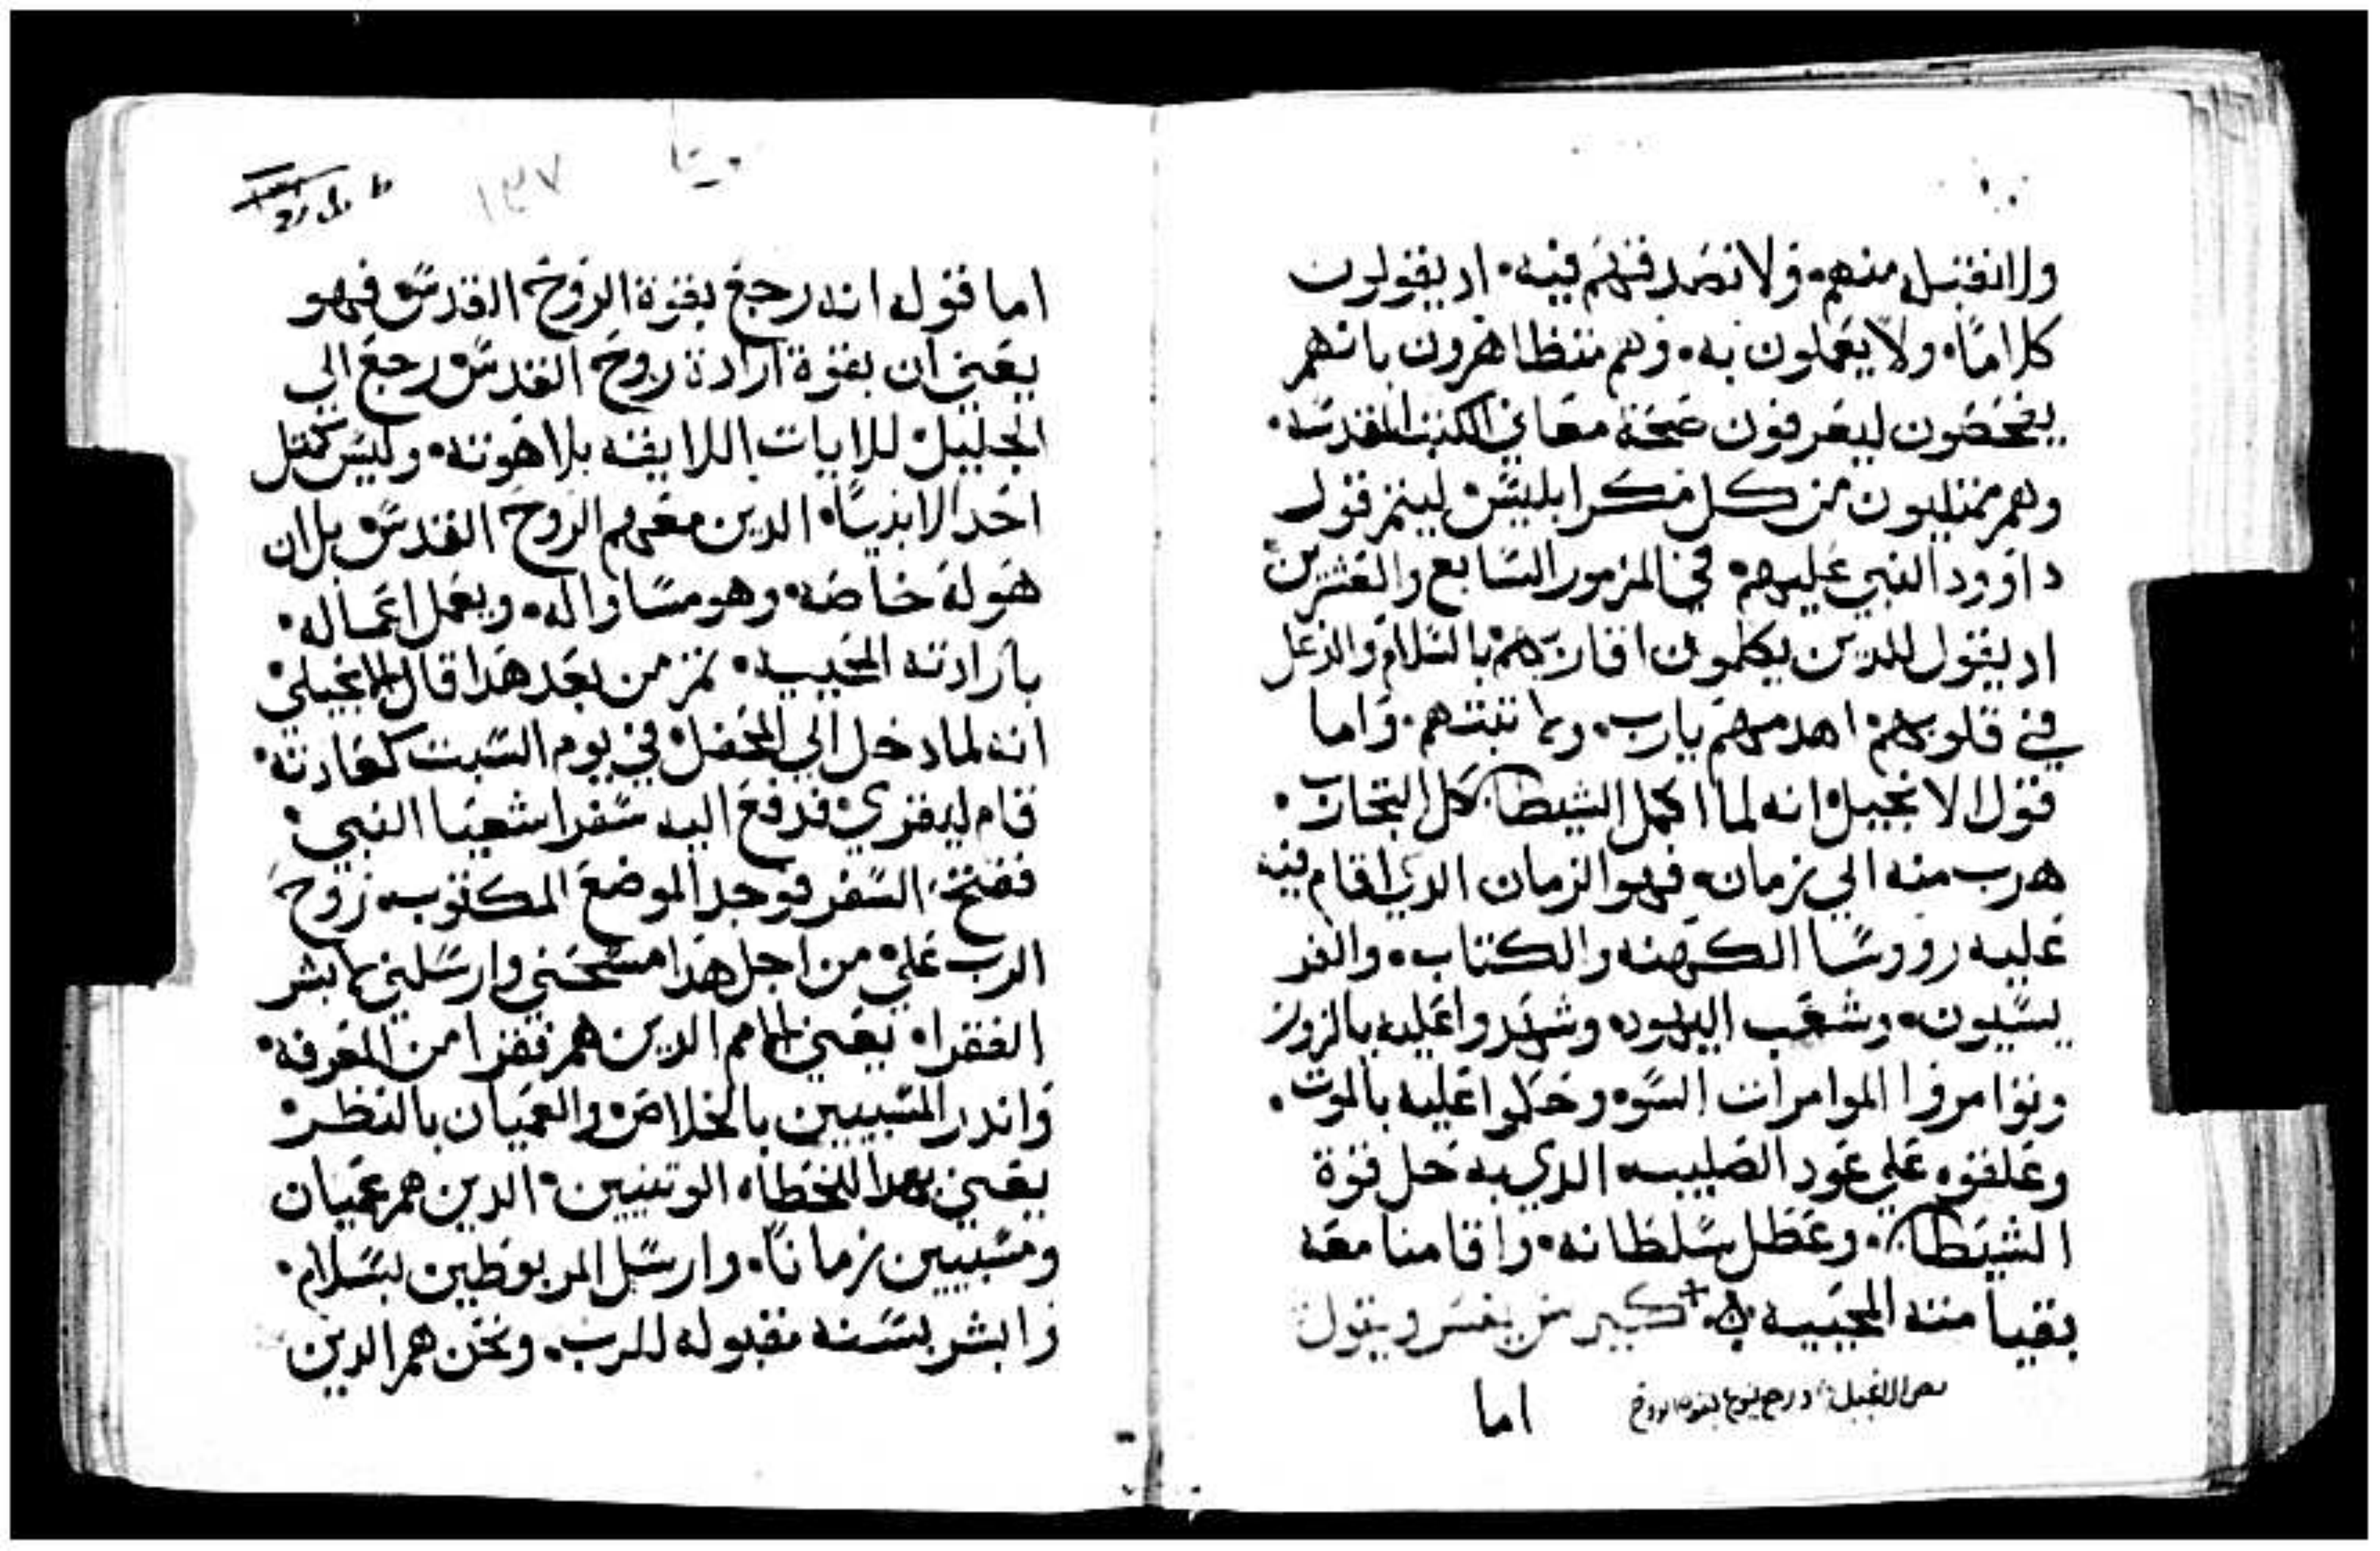 ولا نقبل منهم. ولا نصدقهم فيه. اد يقولون
كلاما. ولا يعملون به. وهم متظاهرون بانهم
يفحصون ليعرفون صحة معاني الكتب المقدسه.
وهم ممتليون من كل مكر ابليس ليتم قول
داوود النبي عليهم. في المزمور السابع والعشرين
اد يقول للدين يكلمون اقاربهم بالسلام والدغل
في قلوبهم اهدمهم يارب. ولا تبتهم. واما
قول الانجيل انه لما اكمل الشيطان كل التجارب.
هرب منه الي زمان. فهو الزمان الدي اقام فيه
عليه رووسا الكهنه والكتاب. والفر
يسيون. وشعب اليهود. وشهدوا عليه بالزور
وتوامروا الموامرات السوء وحكموا عليه بالموت.
وعلقوه علي عود الصليب الدي به حل قوة
الشيطان. وعطل سلطانه. واقامنا معه
بقيامته المحييه + كيرلس يفسر ويقول
نص الانجيل: ورجع يسوع بقوة الروح
اما
١٣٧
اما قوله انه رجع بقوة الروح القدس فهو
يعني ان بقوة ارادة روح القدس رجع الي
الجليل للايات اللايقه بلاهوته. وليس كمتل
احد الانبيا. الدين معهم الروح القدس بل ان
هو له خاصه. وهو مساو اله. ويعمل اعماله.
بارادته المحييه. تم من بعد هدا قال الانجيلي
انه لما دخل الي المحفل في يوم السبت كعادته.
قام ليقري فدفع اليه سفر اشعيا النبي.
ففتح السفر فوجد الموضع المكتوب. روح
الرب علي من اجل هدا مسحني وارسلني لابشر
الفقرا. يعني الامم الدين هم فقرا من المعرفه.
واندر المسبيين بالخلاص والعميان بالنظر
يعني بهدا للخطاه الوتنيين. الدين هم عميان
ومسبيين زمانا. وارسل المربوطين بسلام.
وابشر بسنه مقبوله للرب. ونحن هم الدين